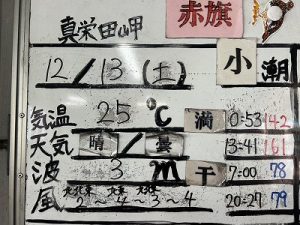 赤旗
真栄田岬
12/13(土) 小潮
気温 25℃ 満 0:53 142
天気 晴/曇 13:41 161
波 3m 干 7:00 78
風 2~4~3~4 20:27 79